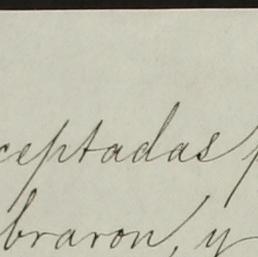 ceptadas p
braron, y